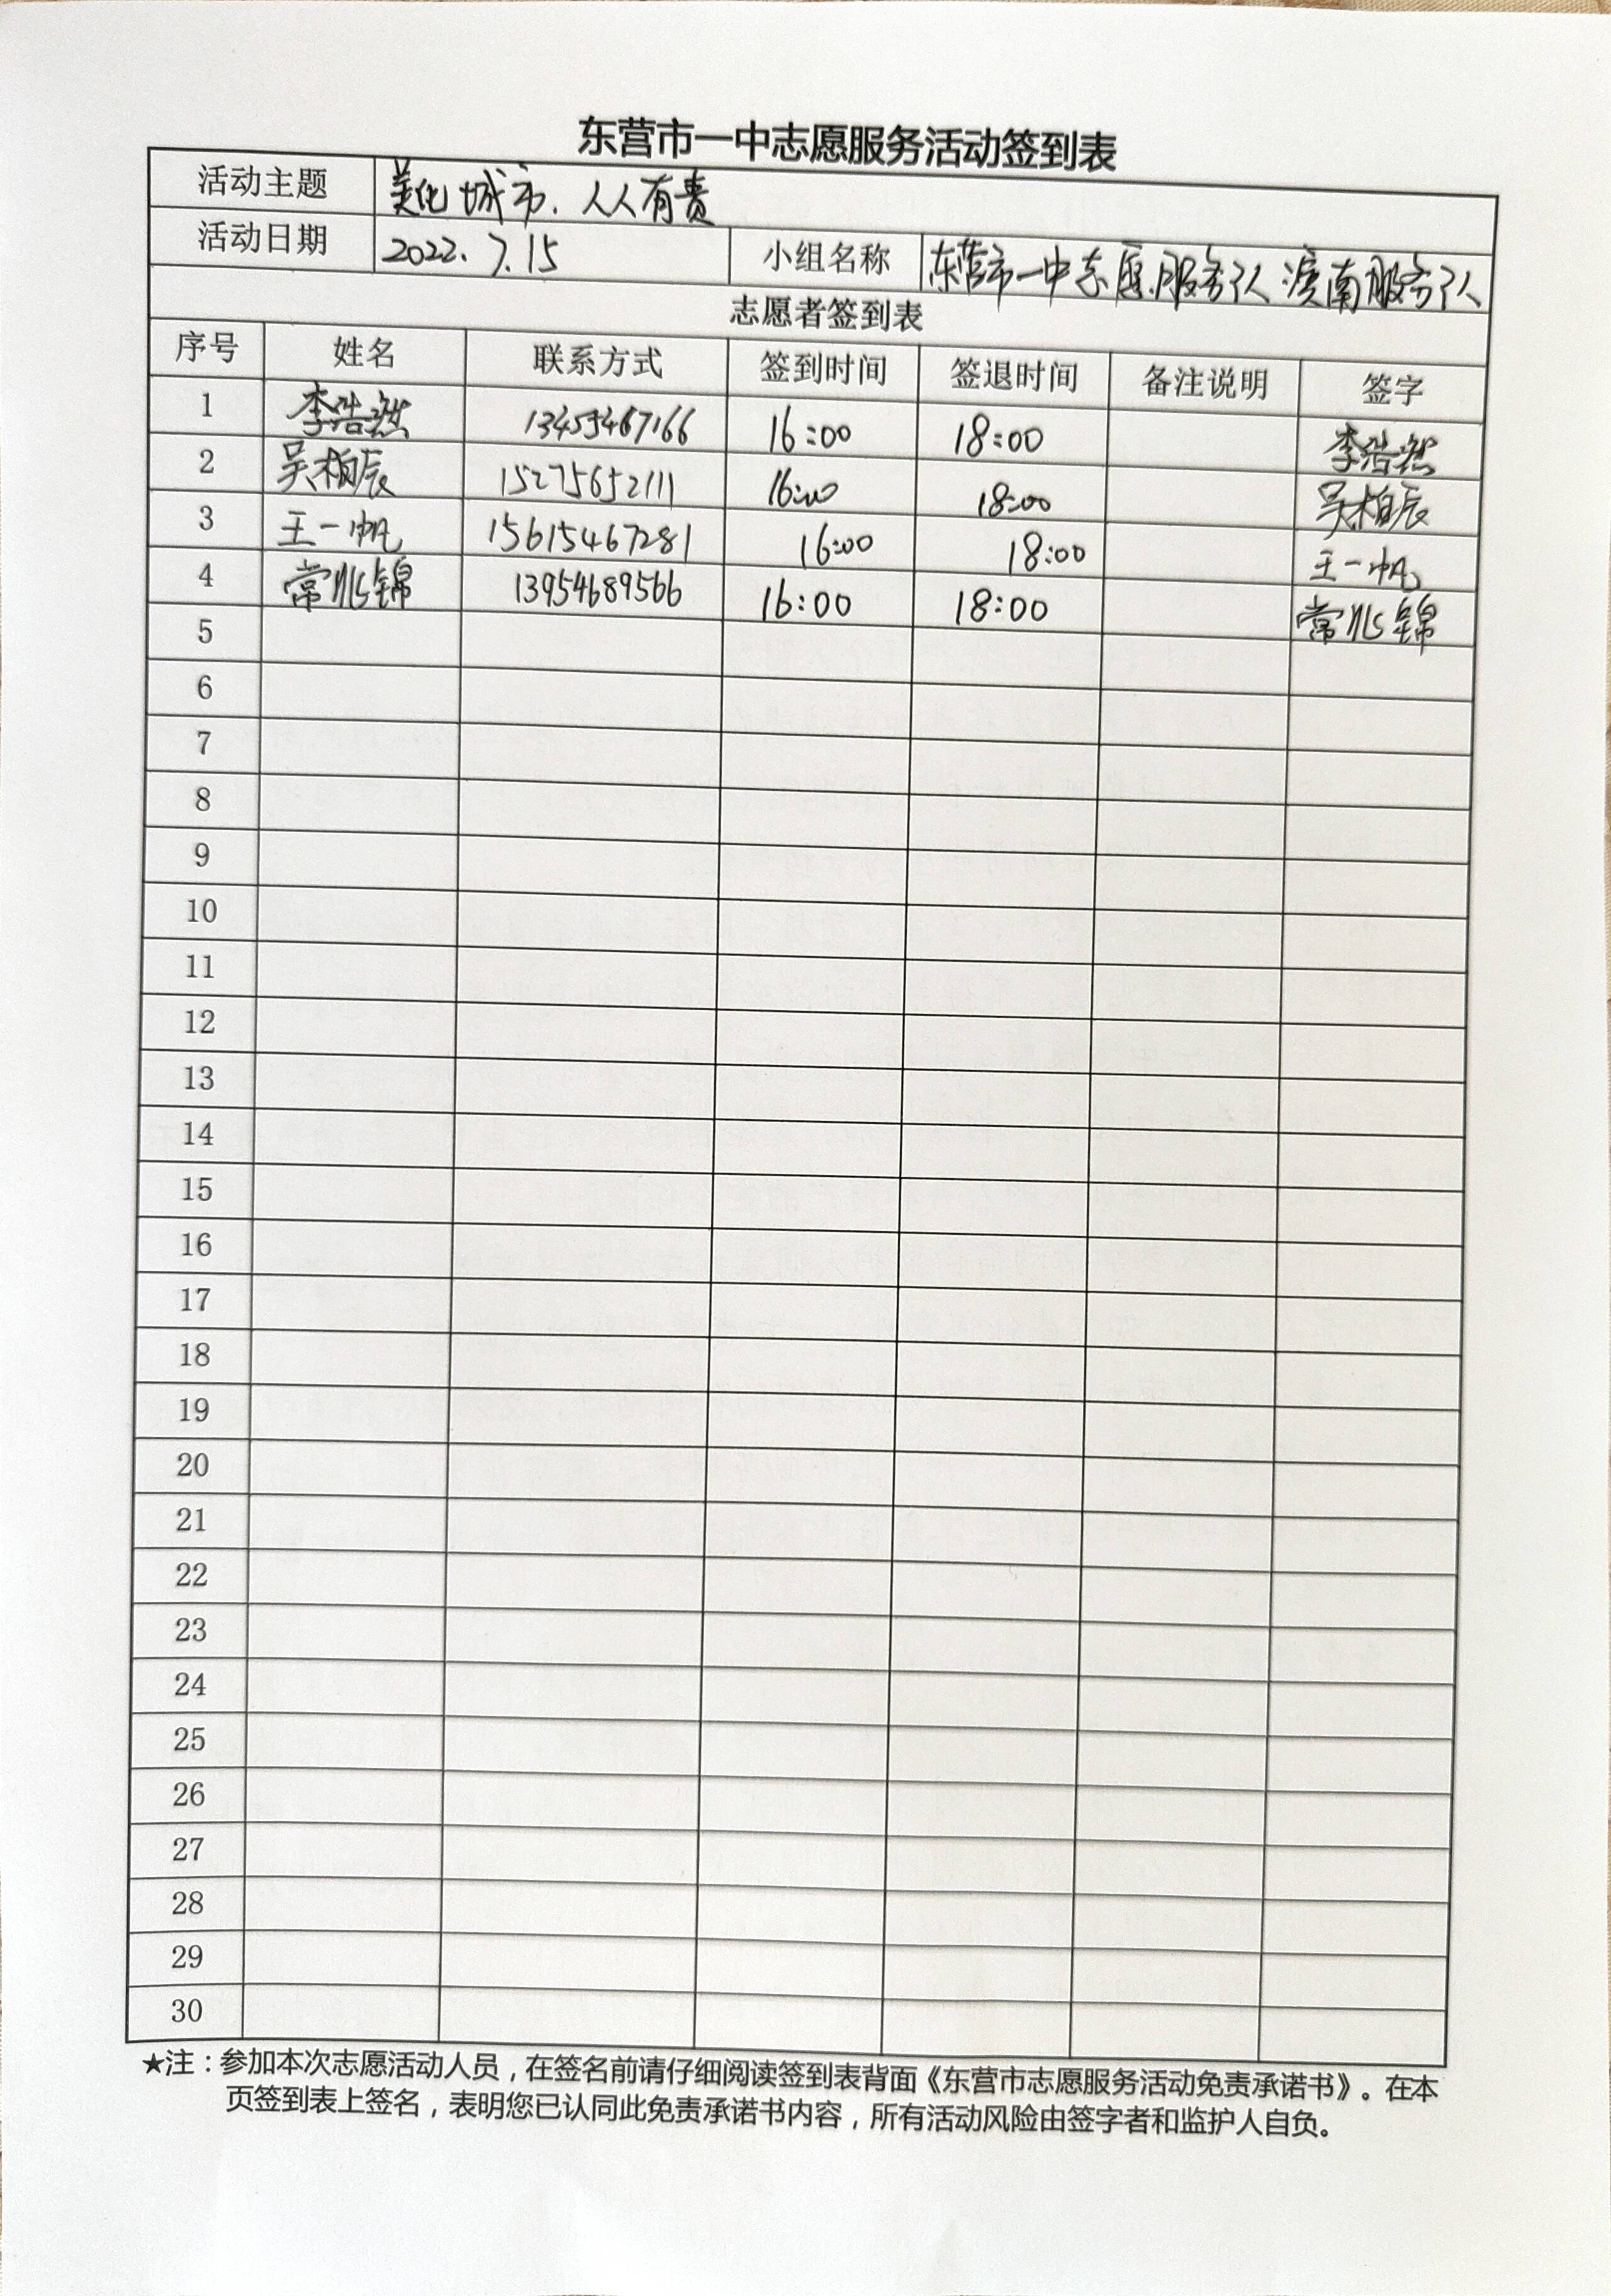 东营市一中志愿服务活动签到表
活动主题 美化城市.人人有责
活动日期 2022.7.15 小组名称 东营市一中志愿服务队 南服务队
志愿者签到表
序号 姓名 联系方式 签到时间 签退时间 备注说明 签字
1 李浩然 13455467166 16:00 18:00 李浩然
2 吴柏辰 15275652111 16:00 18:00 吴柏辰
3 王一帆 15615467281 16:00 18:00 王一帆
4 常兆锦 13954689566 16:00 18:00 常兆锦
5
6
7
8
9
10
11
12
13
14
15
16
17
18
19
20
21
22
23
24
25
26
27
28
29
30
★注：参加本次志愿活动人员，在签名前请仔细阅读签到表背面《东营市志愿服务活动免责承诺书》。在本
页签到表上签名，表明您已认同此免责承诺书内容，所有活动风险由签字者和监护人自负。